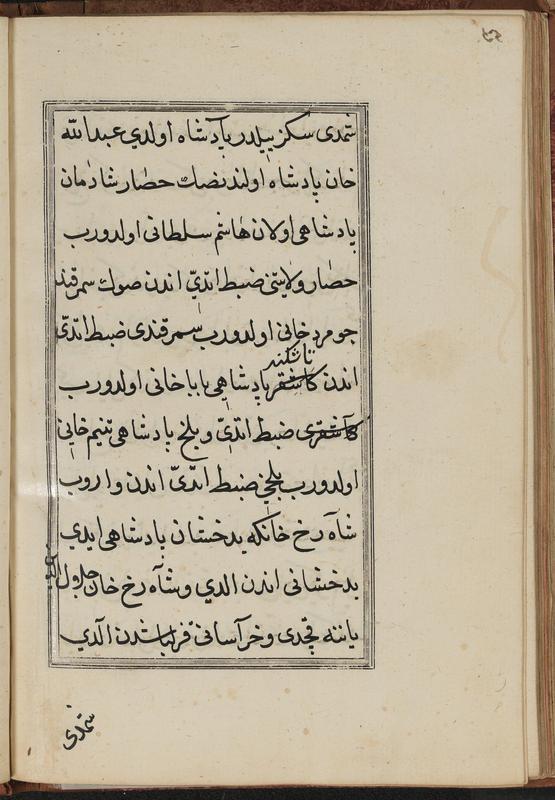 شمدی سکز ییلدر پادشاه اولدي عبدالله
خان پادشاه اولندنصك حصار شادمان
پادشاهی اولان هاشم سلطانی اولدورب
حصار ولایتنی ضبط اتدیّ اندن صوك سمرقند
جومرد خانی اولدورب سمرقندی ضبط اتدیّ
تاشکند
اندن کاشقر پادشاهی بابا خانی اولدورب
کاشقری ضبط اتدیّ و بلخ پادشاهی تنیم خانی
اولدورب بلخی ضبط اتدیّ اندن واروب
شاه رخ خانکه بدخشان پادشاهی ایدي
بدخشانی اندن الدي وشاه رخ خان جلال الدین
یاننه قچدی وخرآسانی قزلباشدن الّدي
شمدی